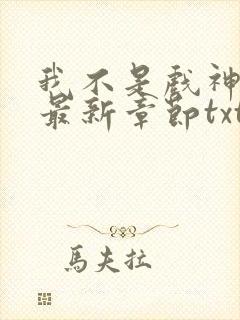 我不是戏神
最新章节txt
馬夫拉